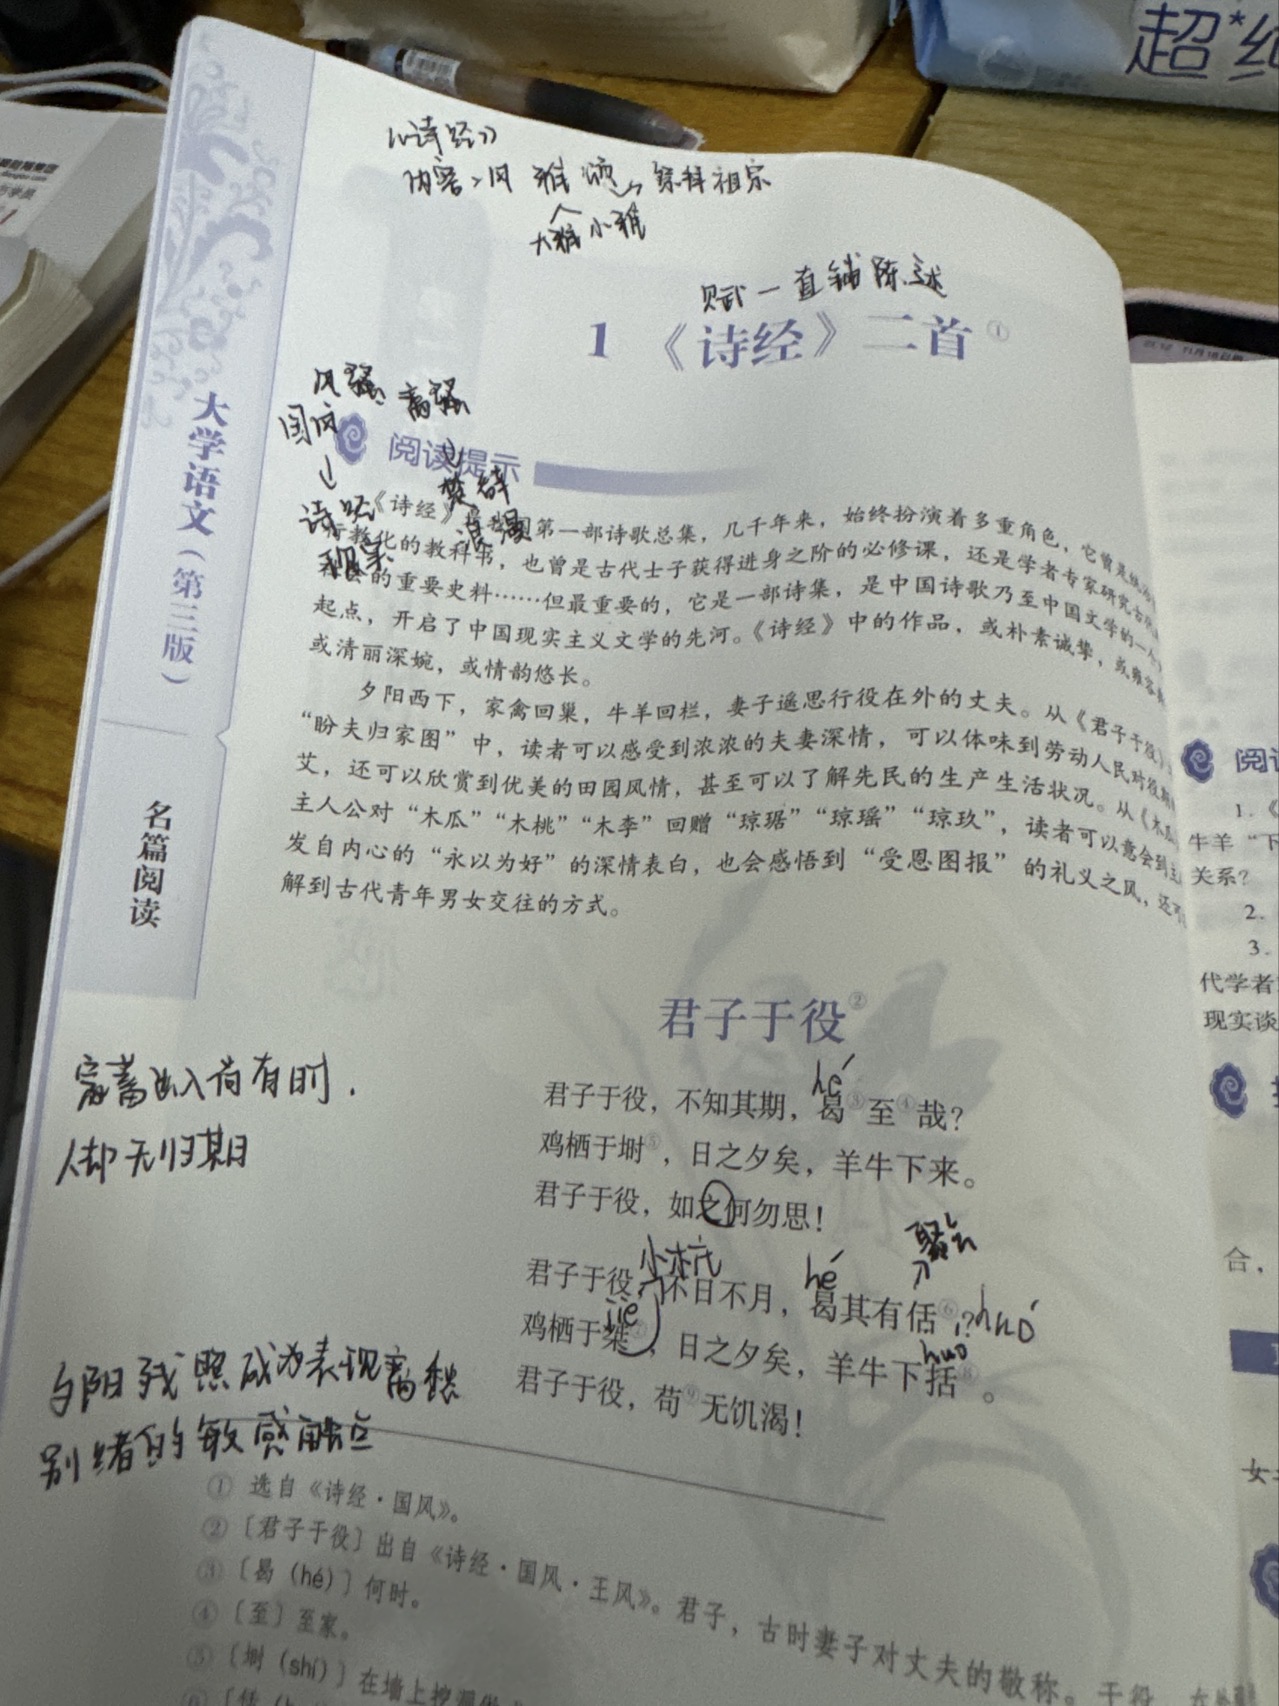 超*纯
《诗经》
内容：风 雅 颂→祭拜祖宗
大雅 小雅
赋一直铺陈述
1 《诗经》二首①
风骚 离骚
国风
阅读提示
楚辞
诗经
浪漫
大学语文（第三版）
名篇阅读
《诗经》第一部诗歌总集，几千年来，始终扮演着多重角色，它曾是
教化的教科书，也曾是古代士子获得进身之阶的必修课，还是学者专家研究古代
的重要史料……但最重要的，它是一部诗集，是中国诗歌乃至中国文学的一个
起点，开启了中国现实主义文学的先河。《诗经》中的作品，或朴素诚挚，或雍容
或清丽深婉，或情韵悠长。
夕阳西下，家禽回巢，牛羊回栏，妻子遥思行役在外的丈夫。从《君子于役》
“盼夫归家图”中，读者可以感受到浓浓的夫妻深情，可以体味到劳动人民对役期
艾，还可以欣赏到优美的田园风情，甚至可以了解先民的生产生活状况。从《木瓜
主人公对“木瓜”“木桃”“木李”回赠“琼琚”“琼瑶”“琼玖”，读者可以意会到主
发自内心的“永以为好”的深情表白，也会感悟到“受恩图报”的礼义之风，还可
解到古代青年男女交往的方式。
君子于役②
家畜出入尚有时，
人却无归期
hé
君子于役，不知其期，曷③至④哉？
鸡栖于埘⑤，日之夕矣，羊牛下来。
君子于役，如之何勿思！
小木桩
hé
聚会
君子于役，不日不月，曷其有佸⑥？huó
jié
huó
鸡栖于桀⑦，日之夕矣，羊牛下括⑧。
君子于役，苟⑨无饥渴！
夕阳残照成为表现离愁
别绪的敏感触点
① 选自《诗经·国风》。
② ［君子于役］出自《诗经·国风·王风》。君子，古时妻子对丈夫的敬称。于役，
③ ［曷（hé）］何时。
④ ［至］至家。
⑤ ［埘（shí）］在墙上挖洞
⑥ ［佸
阅
1.《
牛羊“下
关系？
2.
3.
代学者
现实谈
合，
女